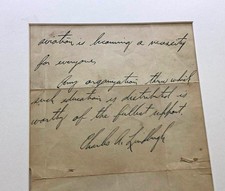 aviation is becoming a necessity
for everyone.
Any organization thru which
such education is distributed is
worthy of the fullest support.
Charles A. Lindbergh